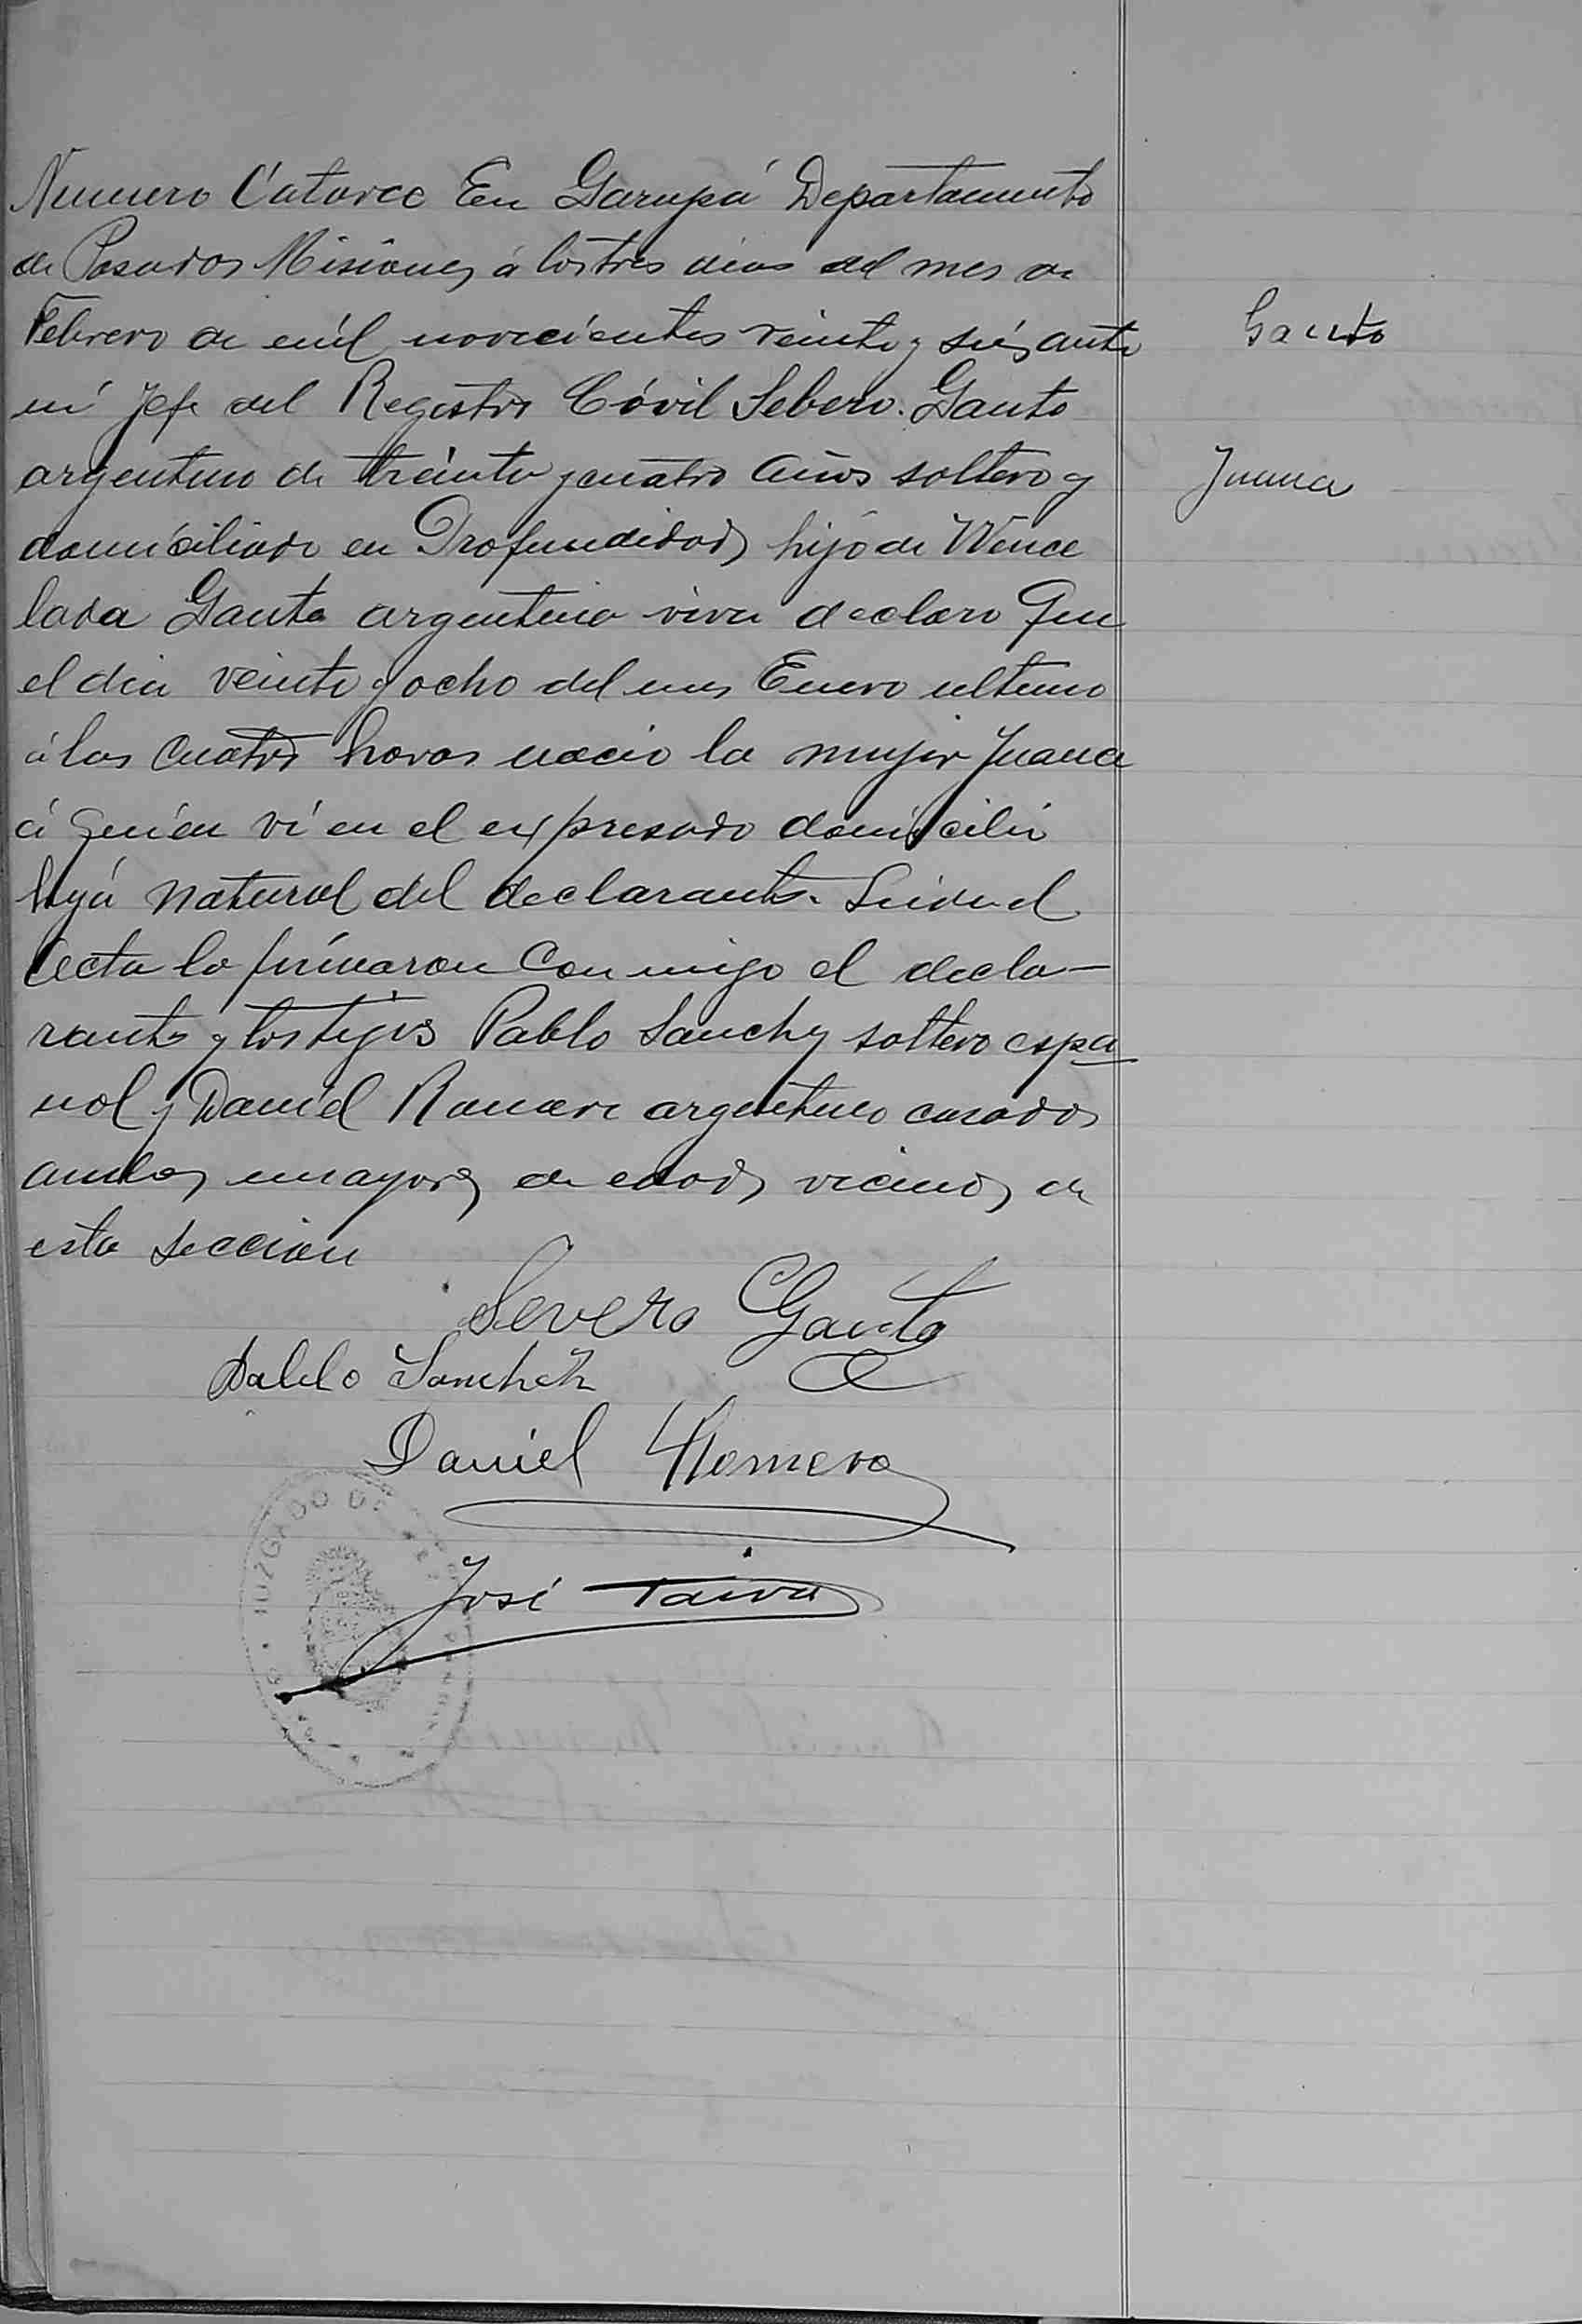 Numero Catorce En Garupá Departamento
de Posadas Misiones á los tres dias del mes de
Febrero de mil novecientos veinte y seis ante
mi Jefe del Registro Civil Sebero. Gauto
argentino de treinta y cuatro años soltero y
domiciliado en Profundidad hijo de Wence
lada Gauto argentina viva declaro Que
el dia veinte y ocho del mes Enero ultimo
á las cuatro horas nacio la mujer Juana
á quien ví en el expresado domicilio
hija natural del declarante. Leida el
acta la firmaron conmigo el decla-
rante y testigos Pablo Sanchez soltero espa
nol y Daniel Romero argentino casado
ambos mayores de edad vecinos de
esta Seccion
Gauto
Juana
Severo Gauto
Pablo Sanchez
Daniel Romero
José Paiva
JUZGADO DE